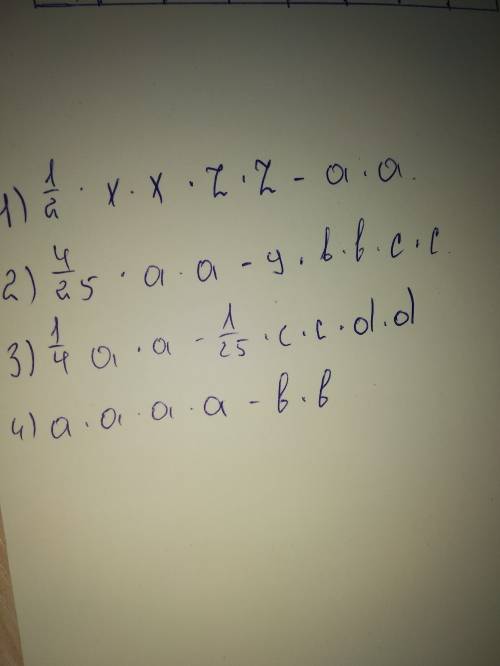 1) 1/2 · x · x · z · z - a · a.
2) 4/25 · a · a - y · b · b · c · c.
3) 1/4 a · a - 1/25 · c · c · d · d
4) a · a · a · a - b · b